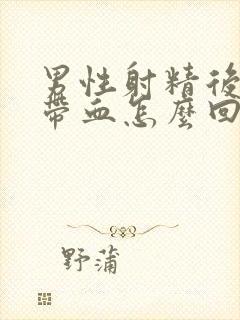 男性射精後
帶血怎麼回
野蒲